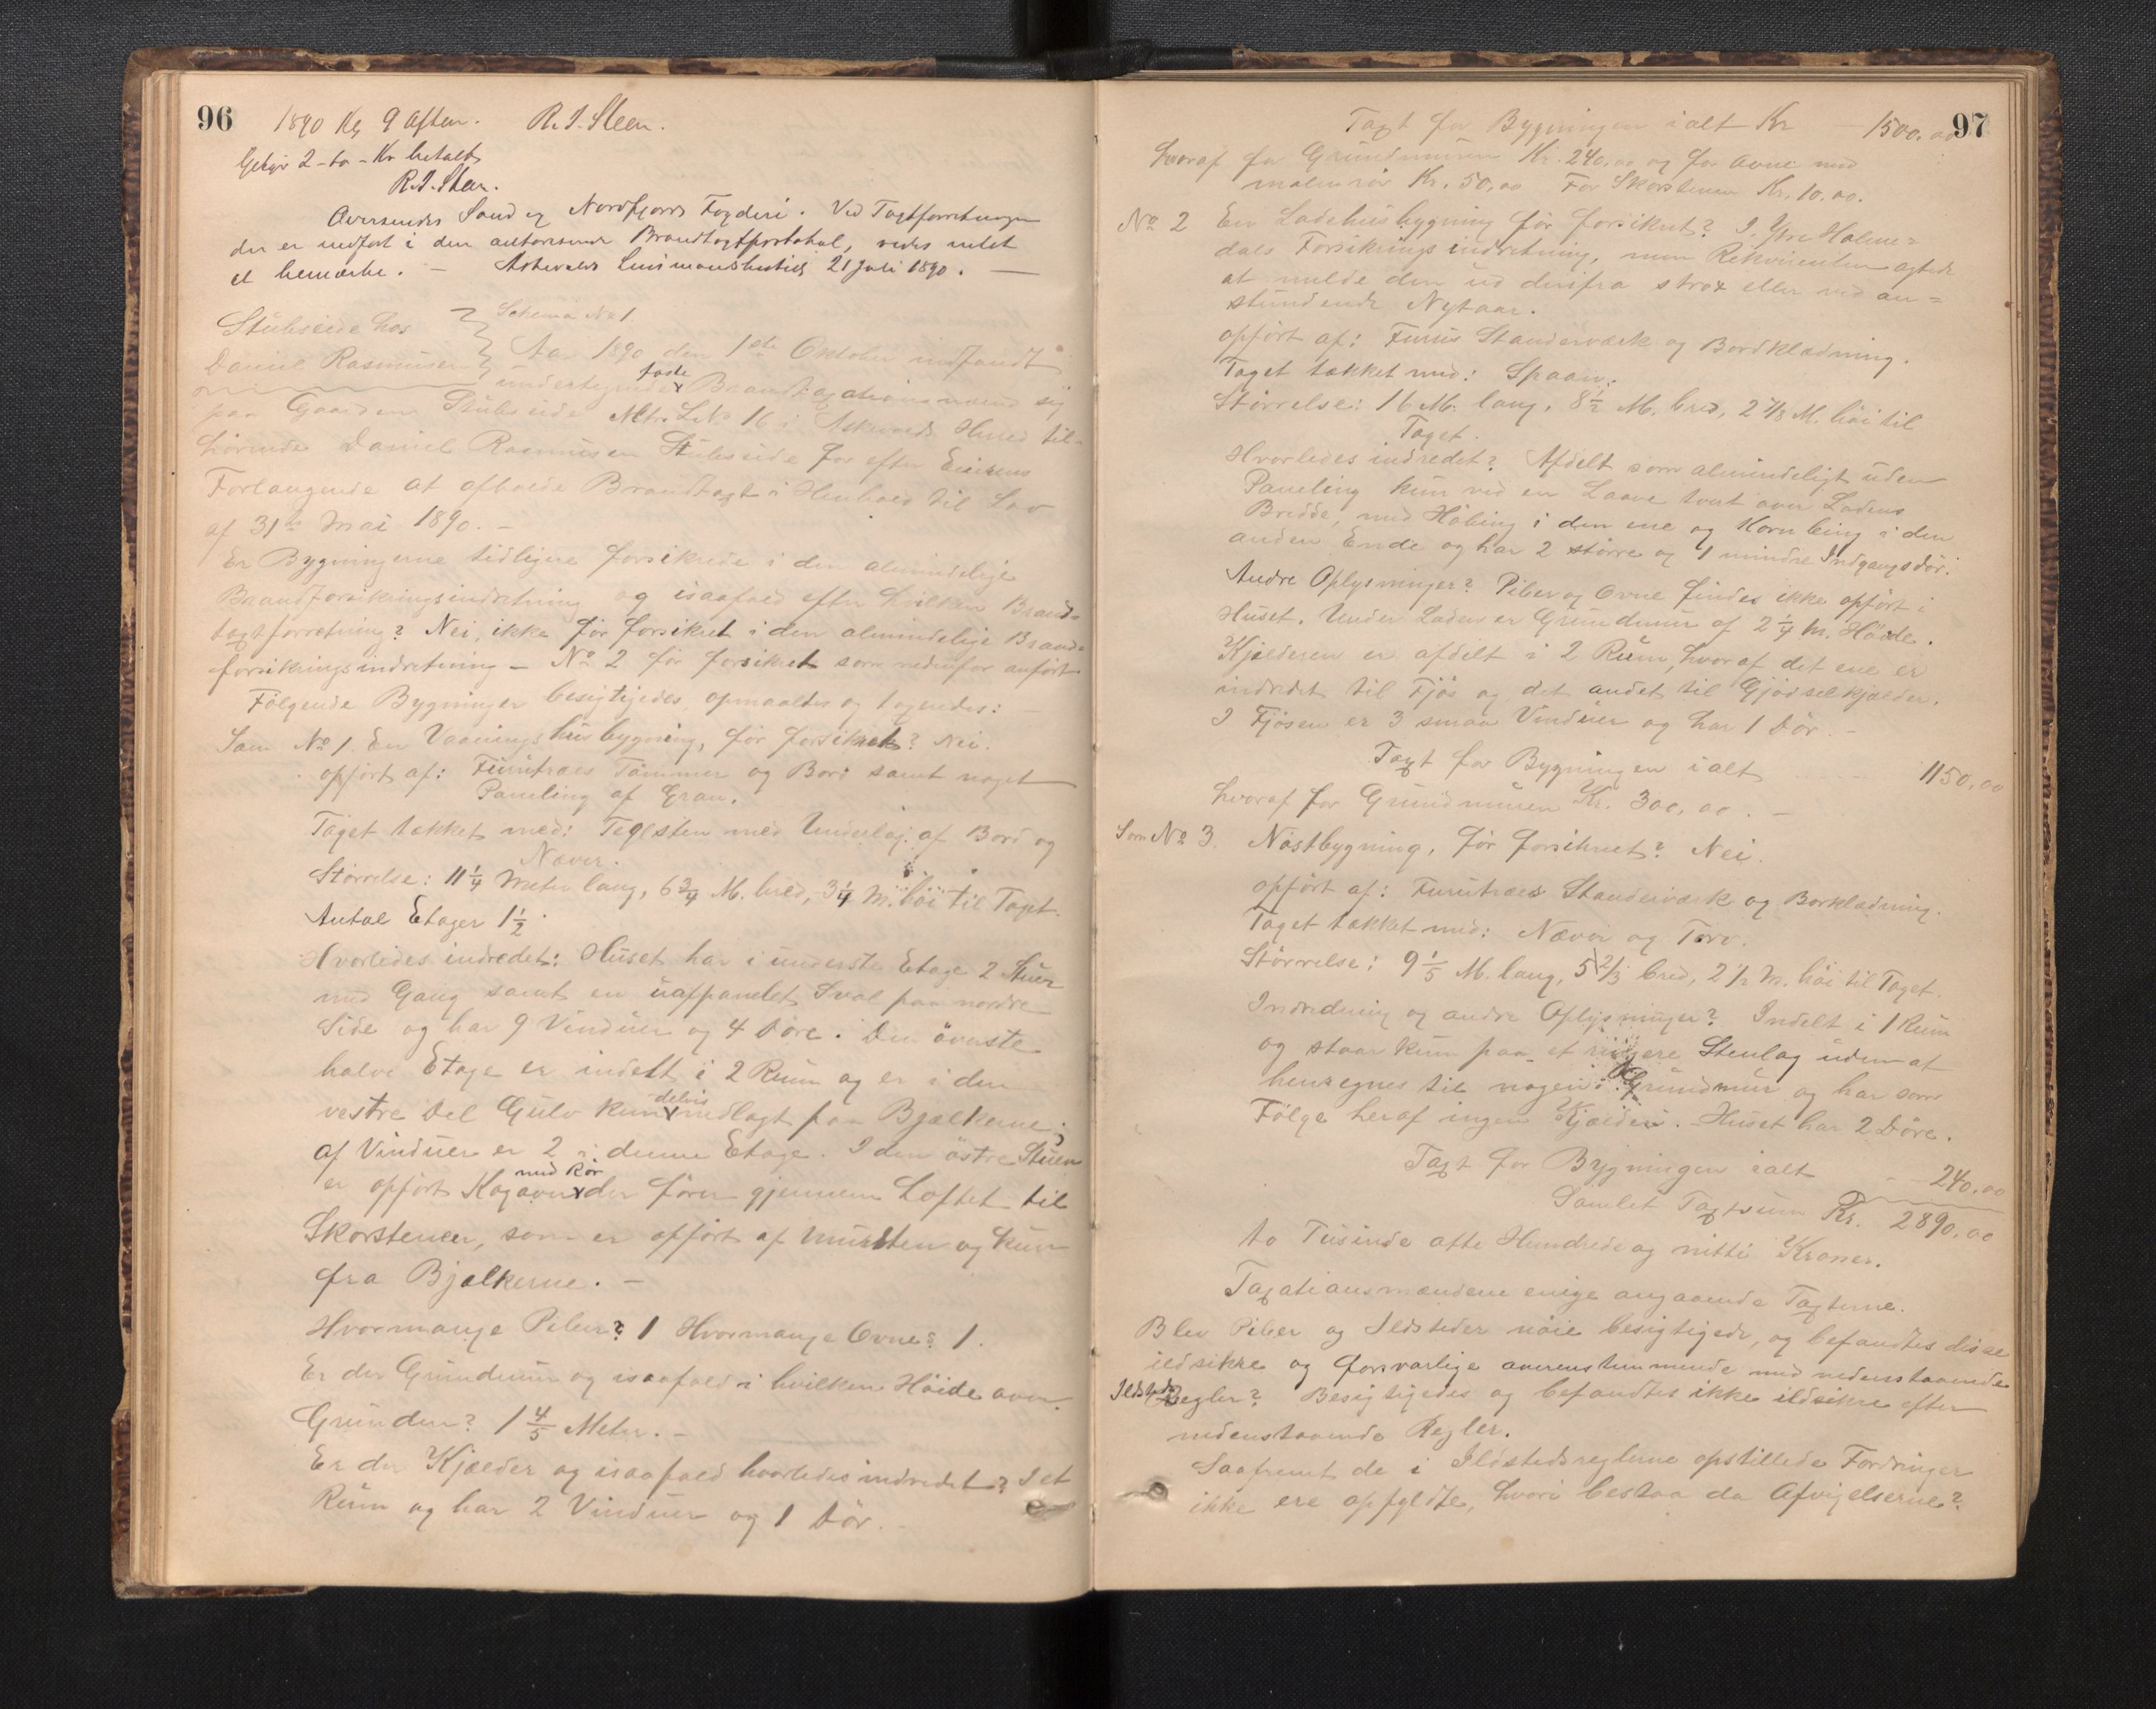 96
1890 Kl. 9 Aften. R. I. Steen.
Gebyr 2 - to - Kr betalt
R. I. Steen.
Oversendes Sønd og Nordfjords Fogderi. Ved Taxtforretningen
der er indført i den autoriserede Brandtaxtprotokol, vides intet
at bemærke. — Askevolds Lensmandsbestill 21 Juli 1890. —
Stubseide hos
Daniel Rasmusen
Schema No 1
Aar 1890 den 1ste Oktober indfandt
undertegnede faste Brandtaxationsmænd sig
paa Gaarden Stubseide Mtr. L.No 16 i Askevolds Herred til-
hørende Daniel Rasmusen Stubseide for efter Eierens
Forlangende at afholde Brandtaxt i Henhold til Lov
af 31te Mai 1890. —
Er Bygningerne tidligere forsikrede i den almindelige
Brandforsikringsindretning og isaafald efter hvilken Brand-
taxtforretning? Nei, ikke før forsikret i den almindelige Brand-
forsikringsindretning — No 2 før forsikret som nedenfor anført
Følgende Bygninger besigtigedes, opmaaltes og taxeredes: —
Som No 1. En Vaaningshusbygning, før forsikret? Nei.
opført af: Furutræs Tømmer og Bord samt noget
Paneling af Gran.
Taget tækket med: Teglsten med Underlag af Bord og
Næver.
Størrelse: 11 1/4 Meter lang, 6 3/4 M. bred, 3 1/4 M. høi til Taget.
Antal Etager 1 1/2.
Hvorledes indredet: Huset har i underste Etage 2 Stuer
med Gang samt en uafpanelet Sval paa nordre
Side og har 9 Vinduer og 4 Døre. Den øverste
halve Etage er indelt i 2 Rum og er i den
vestre Del Gulv kun delvis nedlagt paa Bjælkerne;
af Vinduer er 2 i denne Etage. I den østre Stuen
er opført Kogeovn med Rør der fører gjennem Loftet til
Skorstenen, som er opført af Mursten og kun
fra Bjælkerne. —
Hvormange Piber? 1 Hvormange Ovne? 1.
Er der Grundmur og isaafald i hvilken Høide over
Grunden? 1 4/5 Meter. —
Er der Kjælder og isaafald hvorledes indredet? I et
Rum og har 2 Vinduer og 1 Dør. —
97
Taxt for Bygningen ialt Kr 1500.00
hvoraf for Grundmuren Kr. 240,00 og for Ovne med
malmrør Kr. 50,00 For Skorstenen Kr. 10.00.
No 2 En Ladehusbygning før forsikret? I Ytre Holme-
dals Forsikringsindretning, men Rekvirenten agtede
at melde den ud derifra strax eller ved an-
stundende Nytaar.
opført af: Furus Standerværk og Bordklædning.
Taget tækket med: Spaan.
Størrelse: 16 M. lang, 8 1/2 M. bred, 2 2/3 M. høi til
Taget.
Hvorledes indredet? Afdelt som almindeligt uden
Paneling kun ved en Laave tvert over Ladens
Bredde, med Høbing i den ene og Kornbing i den
anden Ende og har 2 større og 1 mindre Indgangsdør.
Andre Oplysninger? Piber og Ovne findes ikke opført i
Huset. Under Laden er Grundmur af 2 1/4 M. Høide.
Kjælderen er afdelt i 2 Rum, hvoraf det ene er
indredet til Fjøs og det andet til Gjødselkjælder.
I Fjøsen er 3 smaa Vinduer og har 1 Dør. —
Taxt for Bygningen ialt 1150,00
hvoraf for Grundmuren Kr. 300,00. —
Som No 3. Nøstbygning, før forsikret? Nei.
opført af: Furutræs Standerværk og Borklædning.
Taget tækket med: Næver og Torv.
Størrelse: 9 1/5 M. lang, 5 2/3 bred, 2 1/2 M. høi til Taget.
Indredning og andre Oplysninger? Indelt i 1 Rum
og staar kun paa et ringere Stenlag uden at
henregnes til nogen Grundmur og har som
Følge heraf ingen Kjælder. Huset har 2 Døre.
Taxt for Bygningen ialt 240,00
Samlet Taxtsum Kr. 2890,00
to Tusinde otte Hundrede og nitti Kroner.
Taxationsmændene enige angaaende Taxterne.
Blev Piber og Ildsteder nøie besigtigede, og befandtes disse
ildsikre og forsvarlige overensstemmende med nedenstaaende
Ildsteds Regler? Besigtigedes og befandtes ikke ildsikre efter
nedenstaaende Regler.
Saafremt de i Ildstedsreglerne opstillede Fordringer
ikke ere opfyldte, hvori bestaa da Afvigelserne?